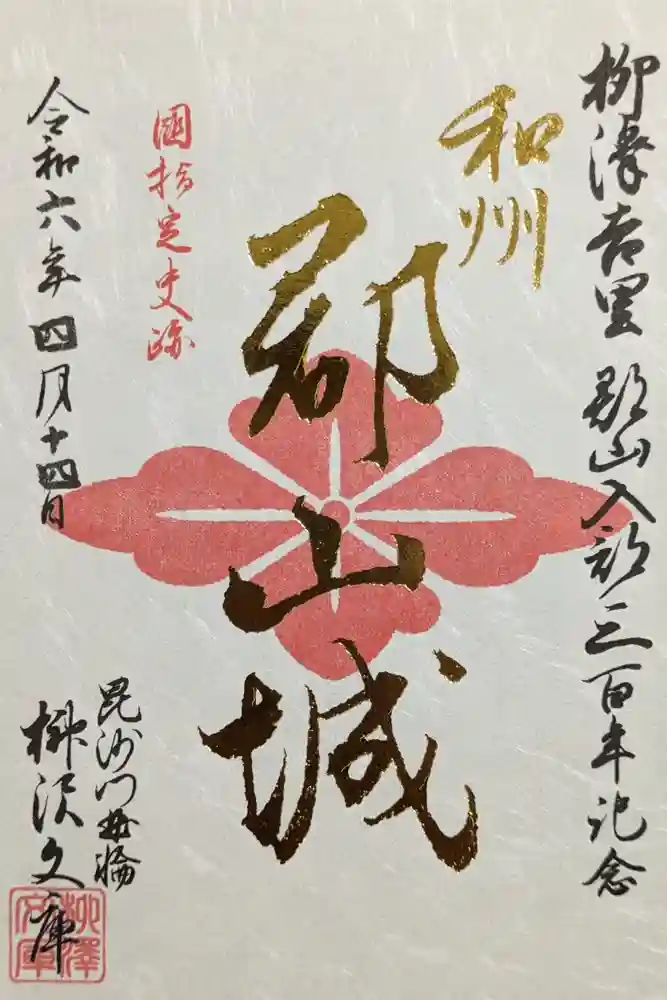 柳澤吉里 郡山入部三百年記念
和州
郡山城
國指定史跡
令和六年四月十四日
毘沙門曲輪
柳沢文庫
柳澤文庫